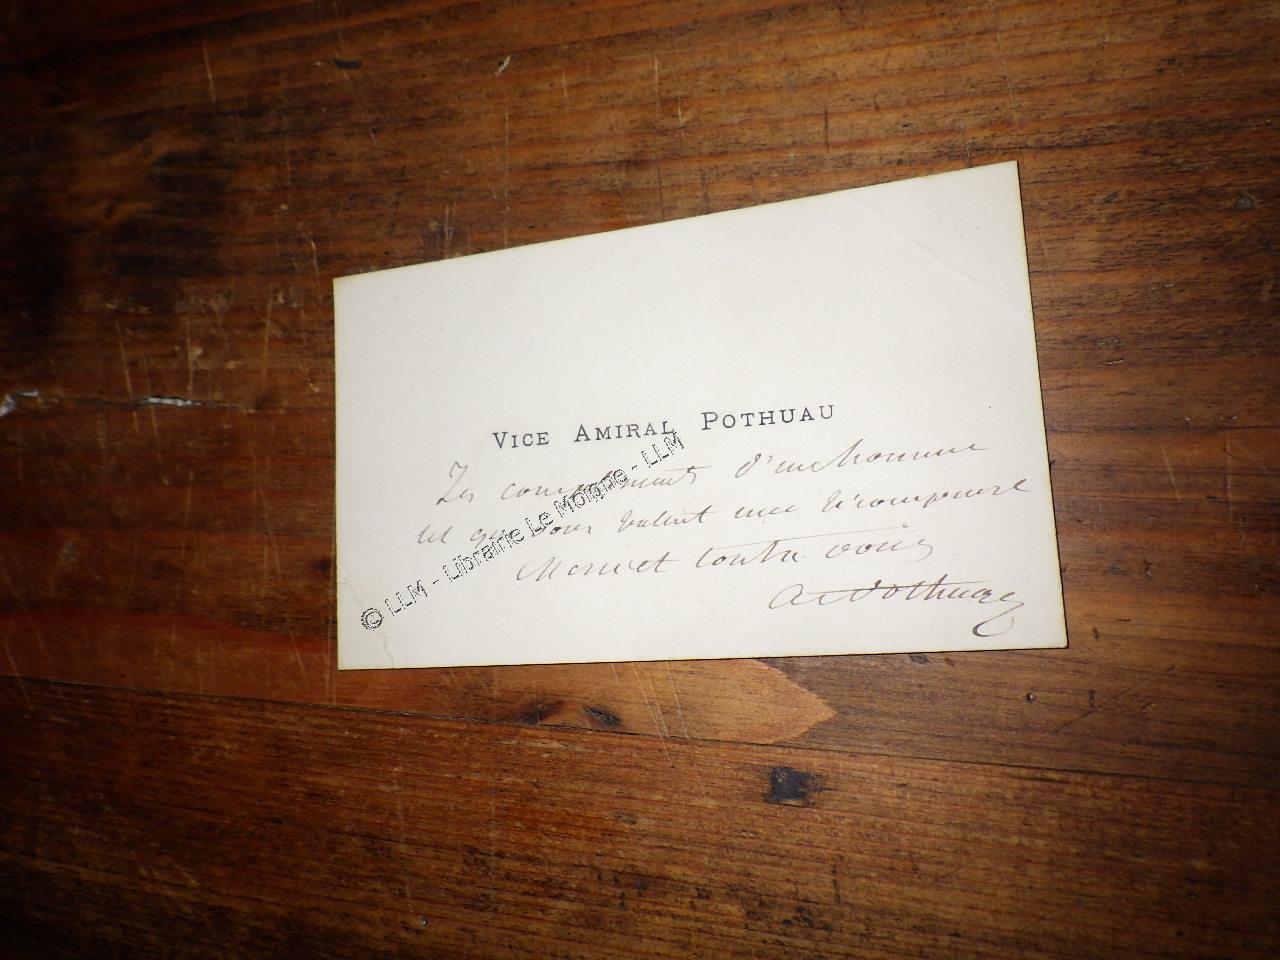 VICE AMIRAL POTHUAU
Les compliments d'un homme
tel que vous valent une récompense
Merci et contre voie
A Pothuau
© LLM - Librairie Le Moigne - LLM